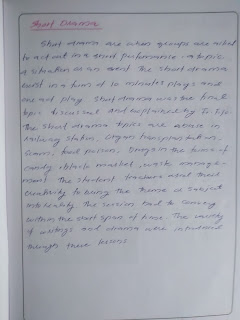 Short Drama
Short drama are when groups are asked
to act out in a short performance - a topic
a situation or an event. The short drama
was in a form of 10 minutes plays and
one act play. Short drama was the final
topic discussed and explained by
The short drama topics are abuse in
railway station, organ transplantation,
Scam, food poison, Drugs in the form of
candy, black market, waste manage-
ment. The student teachers used their
creativity to bring the theme or subject
into reality. The session had to convey
within the short span of time. The variety
of writings and drama were
through these lessons.